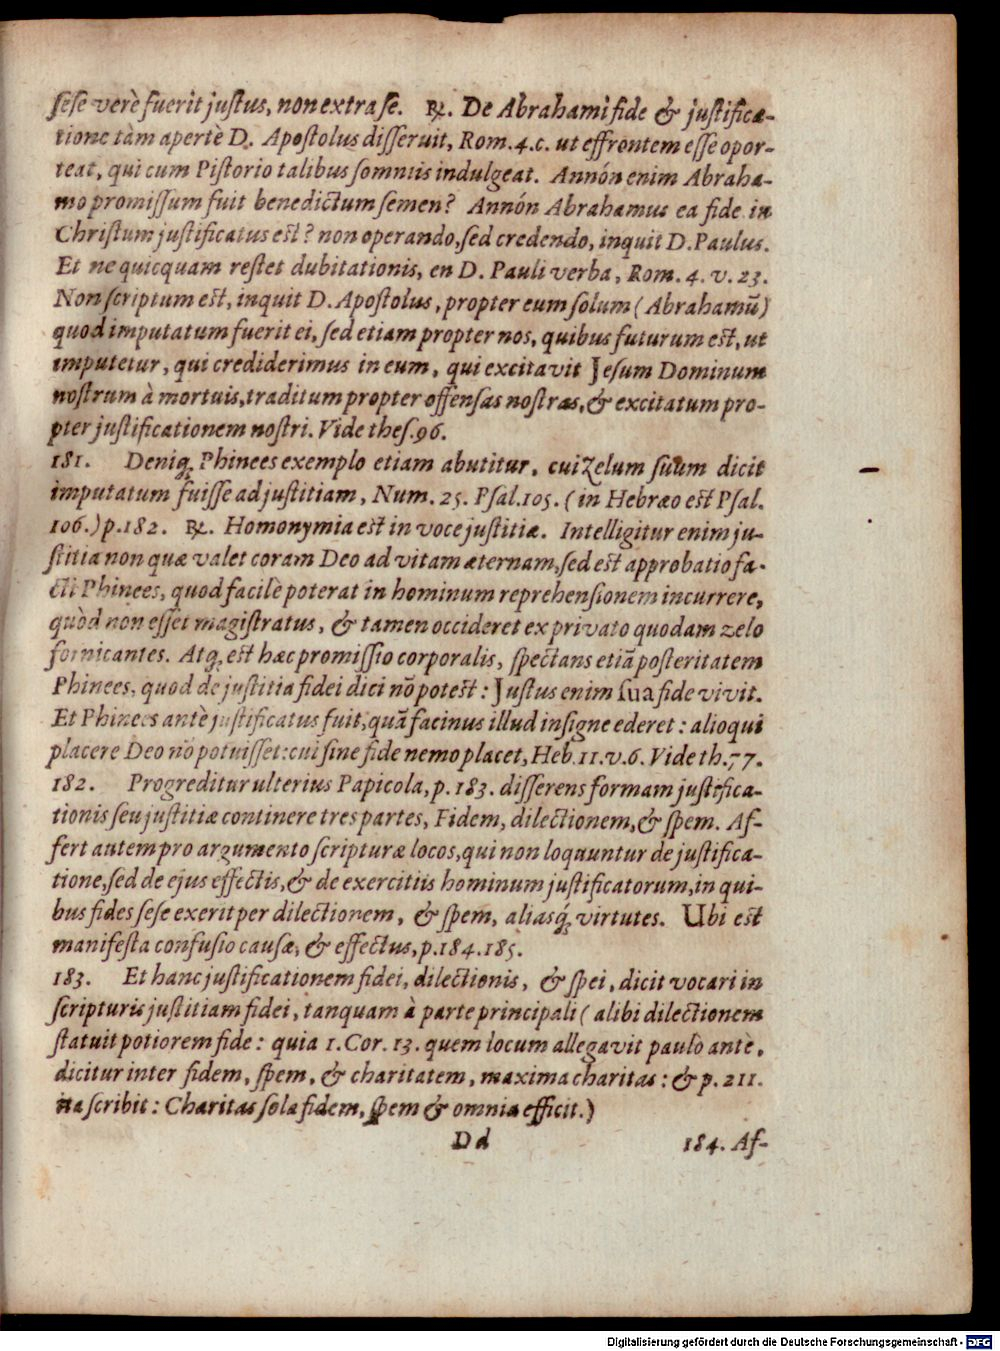 ſeſe verè fuerit juſtus, non extra ſe. ℞. De Abrahami fide & juſtifica-
tione tàm apertè D. Apoſtolus diſſeruit, Rom. 4. c. ut effrontem eſſe opor-
teat, qui cum Piſtorio talibus ſomniis indulgeat. Annón enim Abraha-
mo promiſſum fuit benedictum ſemen? Annón Abrahamus ea fide in
Chriſtum juſtificatus eſt? non operando, ſed credendo, inquit D. Paulus.
Et ne quicquam reſtet dubitationis, en D. Pauli verba, Rom. 4. v. 23.
Non ſcriptum eſt, inquit D. Apoſtolus, propter eum ſolum (Abrahamū)
quod imputatum fuerit ei, ſed etiam propter nos, quibus futurum eſt, ut
imputetur, qui crediderimus in eum, qui excitavit Jeſum Dominum
noſtrum à mortuis, traditum propter offenſas noſtras, & excitatum pro-
pter juſtificationem noſtri. Vide theſ. 96.
181. Deniq; Phinees exemplo etiam abutitur, cui Zelum ſuum dicit
imputatum fuiſſe ad juſtitiam, Num. 25. Pſal. 105. (in Hebræo eſt Pſal.
106.) p. 182. ℞. Homonymia eſt in voce juſtitiæ. Intelligitur enim ju-
ſtitia non quæ valet coram Deo ad vitam æternam, ſed eſt approbatio fa-
cti Phinees, quod facilè poterat in hominum reprehenſionem incurrere,
quòd non eſſet magiſtratus, & tamen occideret ex privato quodam zelo
fornicantes. Atq; eſt hæc promiſſio corporalis, ſpectans etiā poſteritatem
Phinees, quod de juſtitia fidei dici nō poteſt: Juſtus enim ſua fide vivit.
Et Phinees antè juſtificatus fuit, quā facinus illud inſigne ederet: alioqui
placere Deo nō potuiſſet: cui ſine fide nemo placet, Heb. 11. v. 6. Vide th. 77.
182. Progreditur ulterius Papicola, p. 183. diſſerens formam juſtifica-
tionis ſeu juſtitiæ continere tres partes, Fidem, dilectionem, & ſpem. Af-
fert autem pro argumento ſcripturæ locos, qui non loquuntur de juſtifica-
tione, ſed de ejus effectis, & de exercitiis hominum juſtificatorum, in qui-
bus fides ſeſe exerit per dilectionem, & ſpem, aliasq́; virtutes. Ubi eſt
manifeſta confuſio cauſæ, & effectus, p. 184. 185.
183. Et hanc juſtificationem fidei, dilectionis, & ſpei, dicit vocari in
ſcripturis juſtitiam fidei, tanquam à parte principali (alibi dilectionem
ſtatuit potiorem fide: quia 1. Cor. 13. quem locum allegavit paulò antè,
dicitur inter fidem, ſpem, & charitatem, maxima charitas: & p. 211.
ita ſcribit: Charitas ſola fidem, ſpem & omnia efficit.)
Dd 184. Af-
Digitalisierung gefördert durch die Deutsche Forschungsgemeinschaft - DFG